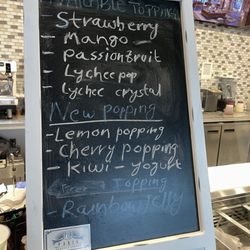 Available Topping
- Strawberry
- Mango -
- passionfruit
- Lychee pop
- lychee crystal
New popping
- Lemon popping
- Cherry popping
- Kiwi - yogurt
Topping
- Rainbow Jelly